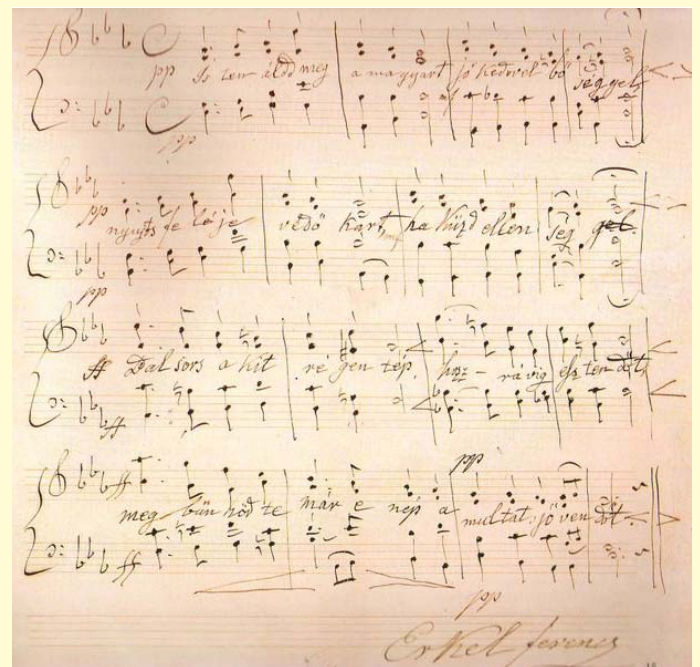 pp Is ten áldd meg a magyart jó kedvvel bő séggel
pp
pp nyujts fe léje védő kart, ha küzd ellen ség gel.
pp
ff Bal sors a kit ré gen tép, hoz - rá víg esz ten dőt,
ff
ff pp
meg bűn hőd te már e nép a multat jöven dőt
ff
pp
Erkel ferencz